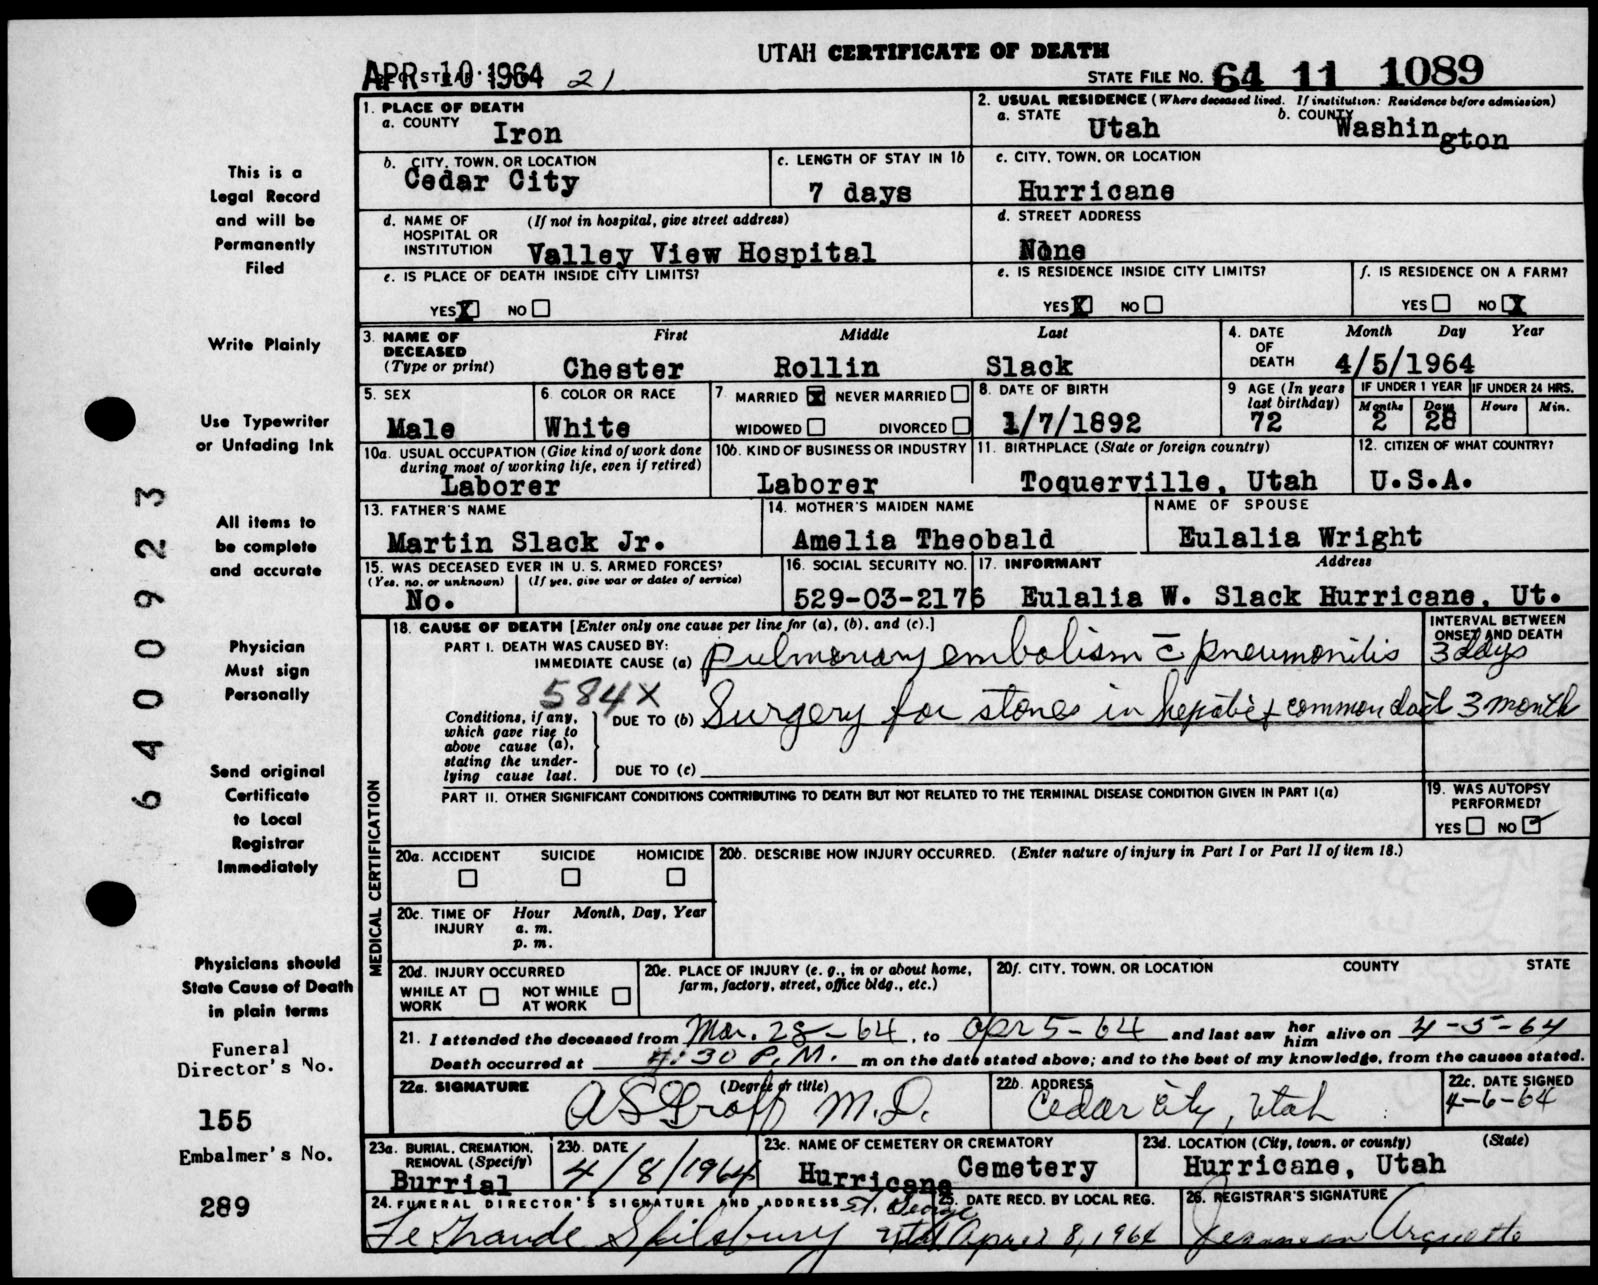 UTAH CERTIFICATE OF DEATH
APR 10 1964 21
STATE FILE No. 64 11 1089
1. PLACE OF DEATH
a. COUNTY Iron
2. USUAL RESIDENCE (Where deceased lived. If institution: Residence before admission)
a. STATE Utah b. COUNTY Washington
b. CITY, TOWN, OR LOCATION Cedar City
c. LENGTH OF STAY IN 1b 7 days
c. CITY, TOWN, OR LOCATION Hurricane
d. NAME OF HOSPITAL OR INSTITUTION (If not in hospital, give street address) Valley View Hospital
d. STREET ADDRESS None
e. IS PLACE OF DEATH INSIDE CITY LIMITS?
YES X NO
e. IS RESIDENCE INSIDE CITY LIMITS?
YES X NO
f. IS RESIDENCE ON A FARM?
YES NO X
3. NAME OF DECEASED (Type or print)
First Middle Last
Chester Rollin Slack
4. DATE OF DEATH Month Day Year
4/5/1964
5. SEX Male
6. COLOR OR RACE White
7. MARRIED X NEVER MARRIED
WIDOWED DIVORCED
8. DATE OF BIRTH 1/7/1892
9 AGE (In years last birthday) 72
IF UNDER 1 YEAR Months 2 Days 28
IF UNDER 24 HRS. Hours Min.
10a. USUAL OCCUPATION (Give kind of work done during most of working life, even if retired) Laborer
10b. KIND OF BUSINESS OR INDUSTRY Laborer
11. BIRTHPLACE (State or foreign country) Toquerville, Utah
12. CITIZEN OF WHAT COUNTRY? U.S.A.
13. FATHER'S NAME Martin Slack Jr.
14. MOTHER'S MAIDEN NAME Amelia Theobald
NAME OF SPOUSE Eulalia Wright
15. WAS DECEASED EVER IN U. S. ARMED FORCES?
(Yes, no, or unknown) (If yes, give war or dates of service)
No.
16. SOCIAL SECURITY NO. 529-03-2176
17. INFORMANT Address
Eulalia W. Slack Hurricane, Ut.
MEDICAL CERTIFICATION
18. CAUSE OF DEATH [Enter only one cause per line for (a), (b), and (c).]
INTERVAL BETWEEN ONSET AND DEATH
PART I. DEATH WAS CAUSED BY:
IMMEDIATE CAUSE (a) Pulmonary embolism c̄ pneumonitis 3 days
584X
Conditions, if any, which gave rise to above cause (a), stating the underlying cause last.
DUE TO (b) Surgery for stones in hepatic & common duct 3 month
DUE TO (c)
PART II. OTHER SIGNIFICANT CONDITIONS CONTRIBUTING TO DEATH BUT NOT RELATED TO THE TERMINAL DISEASE CONDITION GIVEN IN PART I(a)
19. WAS AUTOPSY PERFORMED?
YES NO ✓
20a. ACCIDENT SUICIDE HOMICIDE
20b. DESCRIBE HOW INJURY OCCURRED. (Enter nature of injury in Part I or Part II of item 18.)
20c. TIME OF INJURY Hour Month, Day, Year
a. m.
p. m.
20d. INJURY OCCURRED
WHILE AT WORK NOT WHILE AT WORK
20e. PLACE OF INJURY (e. g., in or about home, farm, factory, street, office bldg., etc.)
20f. CITY, TOWN, OR LOCATION COUNTY STATE
21. I attended the deceased from Mar. 28-64, to Apr 5-64 and last saw her him alive on 4-5-64
Death occurred at 4:30 P.M. m on the date stated above; and to the best of my knowledge, from the causes stated.
22a. SIGNATURE (Degree or title) M.D.
22b. ADDRESS Cedar City, Utah
22c. DATE SIGNED 4-6-64
23a. BURIAL, CREMATION, REMOVAL (Specify) Burrial
23b. DATE 4/8/1964
23c. NAME OF CEMETERY OR CREMATORY Hurricane Cemetery
23d. LOCATION (City, town, or county) (State) Hurricane, Utah
24. FUNERAL DIRECTOR'S SIGNATURE AND ADDRESS St. George
Spilsbury Utah
25. DATE RECD. BY LOCAL REG. April 8, 1964
26. REGISTRAR'S SIGNATURE
Arquette
This is a
Legal Record
and will be
Permanently
Filed
Write Plainly
Use Typewriter
or Unfading Ink
All items to
be complete
and accurate
Physician
Must sign
Personally
Send original
Certificate
to Local
Registrar
Immediately
Physicians should
State Cause of Death
in plain terms
Funeral
Director's No.
155
Embalmer's No.
289
6400923